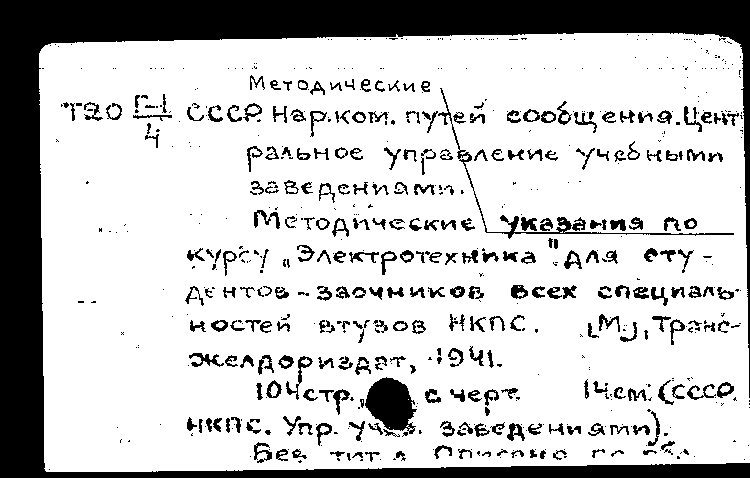 Методические
Т20 Г-1/4 СССР. Нар.ком. путей сообщения. Цент
ральное управление учебными
заведениями.
Методические указания по
курсу „Электротехника" для сту-
дентов-заочников всех специаль-
ностей втузов НКПС. [М.], Транс-
желдориздат, 1941.
104 стр. с черт. 14 см. (СССР.
НКПС. Упр. учеб. заведениями).
Без тит. л. Описано по обл.